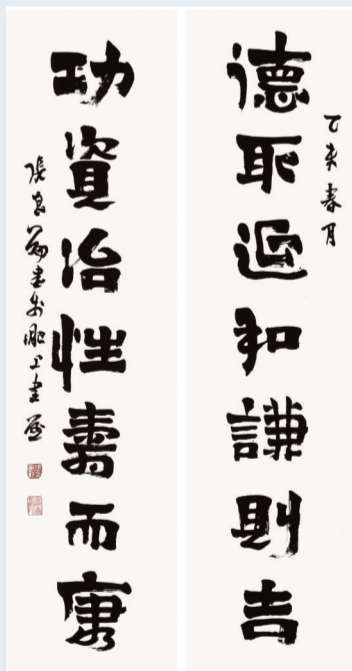 乙未春月
德取延和謙則吉
功資治性壽而康
張良勛書於上書屋